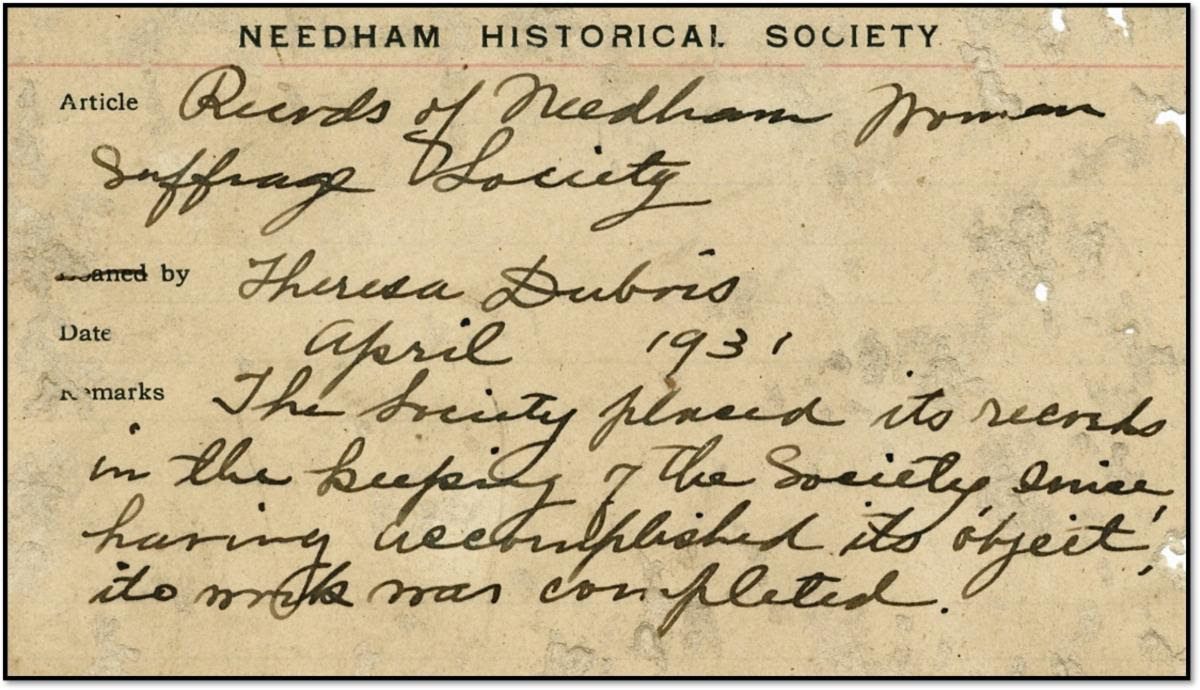 NEEDHAM HISTORICAL SOCIETY
Article Records of Needham Woman
Suffrage Society
Loaned by Theresa Dubois
Date April 1931
Remarks The Society placed its records
in the keeping of the Society since,
having accomplished its 'object',
its work was completed.